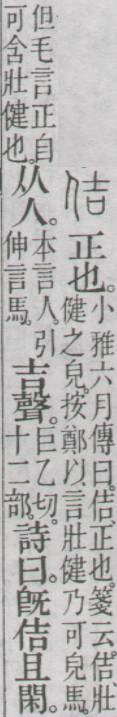 佶
正也。
小雅六月傳曰。佶正也。箋云。佶、壯
健之皃。按鄭以言壯健乃可皃馬。
但毛言正自
可含壯健也。
从人。
本言人。引
伸言馬。
吉聲。
巨乙切。
十二部。
詩曰。旣佶且閑。